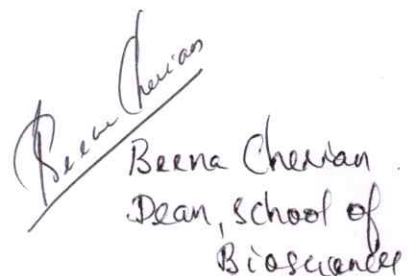 Beena Cherian
Beena Cherian.
Dean, School of
Biosciences